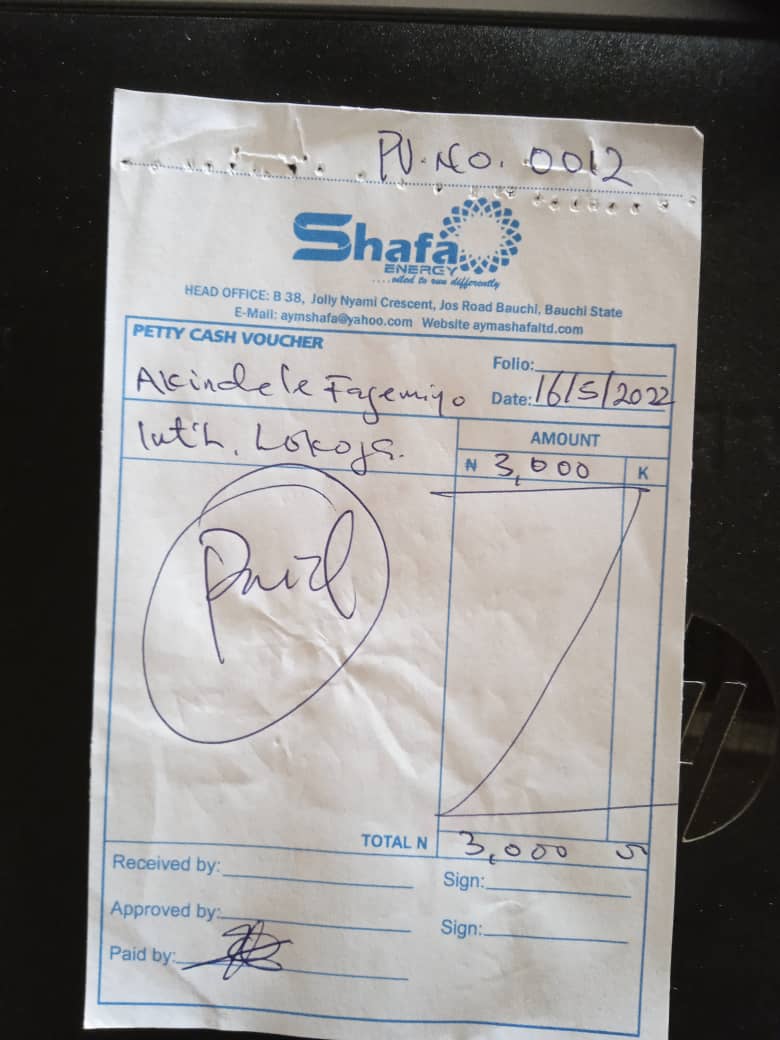 PV. NO. 0012
Shafa
ENERGY
....oiled to run differently
HEAD OFFICE: B 38, Jolly Nyami Crescent, Jos Road Bauchi, Bauchi State
E-Mail: aymshafa@yahoo.com Website aymashafaltd.com
PETTY CASH VOUCHER
Folio:
Akindele Fagemiyo
Date: 16/5/2022
Lokoja.
AMOUNT
₦ 3,000 K
Paid
TOTAL N 3,000
Received by:
Sign:
Approved by:
Sign:
Paid by: